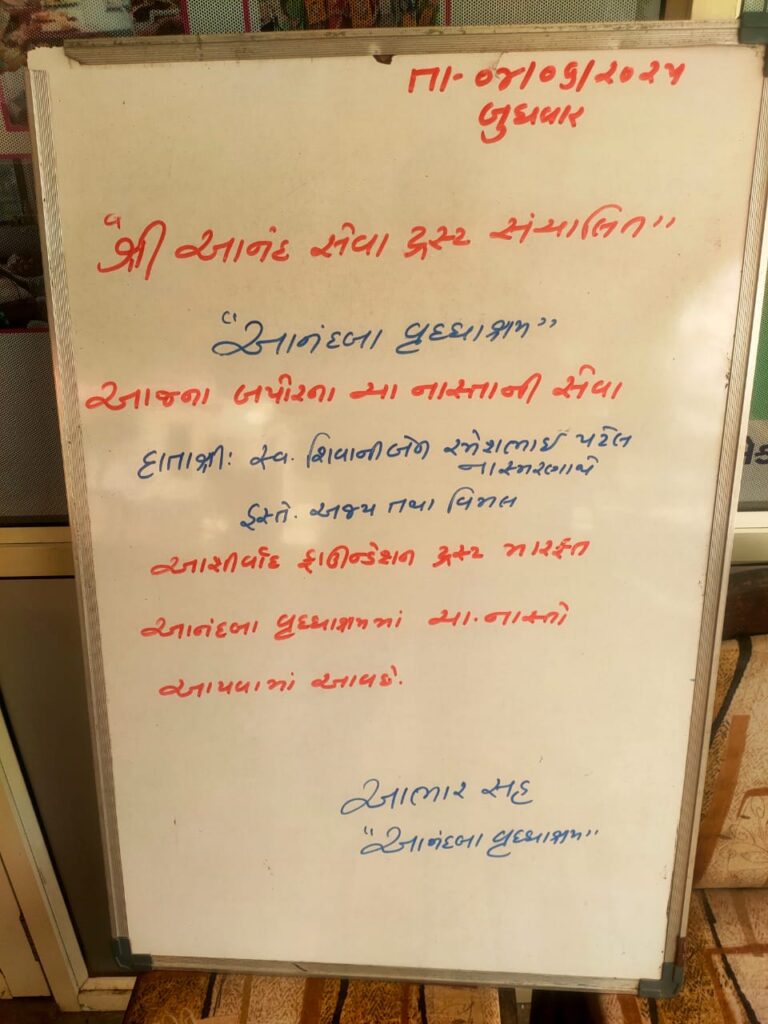 તા- ૦૪/૦૬/૨૦૨૫
બુધવાર
"શ્રી આનંદ સેવા ટ્રસ્ટ સંચાલિત"
"આનંદબા વૃદ્ધાશ્રમ"
આજના બપોરના ચા નાસ્તાની સેવા
દાતાશ્રી: સ્વ. શિવાનીબેન રમેશભાઈ પટેલ
ના સ્મરણાર્થે
હસ્તે. અજય તથા વિમલ
આશીર્વાદ ફાઉન્ડેશન ટ્રસ્ટ મારફત
આનંદબા વૃદ્ધાશ્રમમાં ચા.નાસ્તો
આપવામાં આવશે.
આભાર સહ
"આનંદબા વૃદ્ધાશ્રમ"